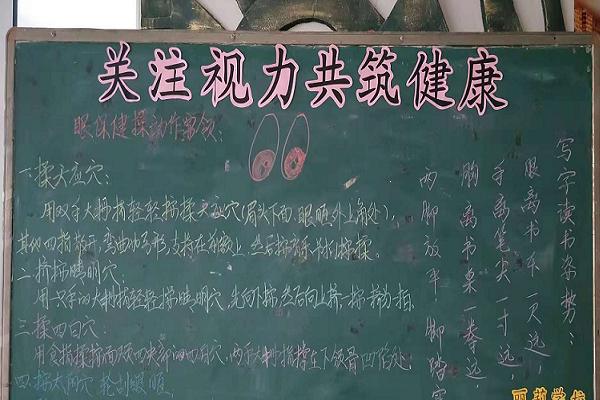 关注视力共筑健康
眼保健操动作要领：
一.揉天应穴：
用双手大拇指轻轻揉天应穴(眉头下面,眼眶外上角处),
其他四指散开,弯曲如弓形,支持在前额上,然后
二.挤按睛明穴.
用一只手的大拇指轻轻按睛明穴,先向下按,然后向上挤一按挤为一拍.
三.揉四白穴:
用食指揉按面颊中央部的四白穴,两手大拇指撑在下颌骨凹陷处.
四.按太阳穴 轮刮眼眶
写字读书姿势：
眼离书本一尺远，
手离笔尖一寸远，
胸离书桌一拳远，
两脚放平